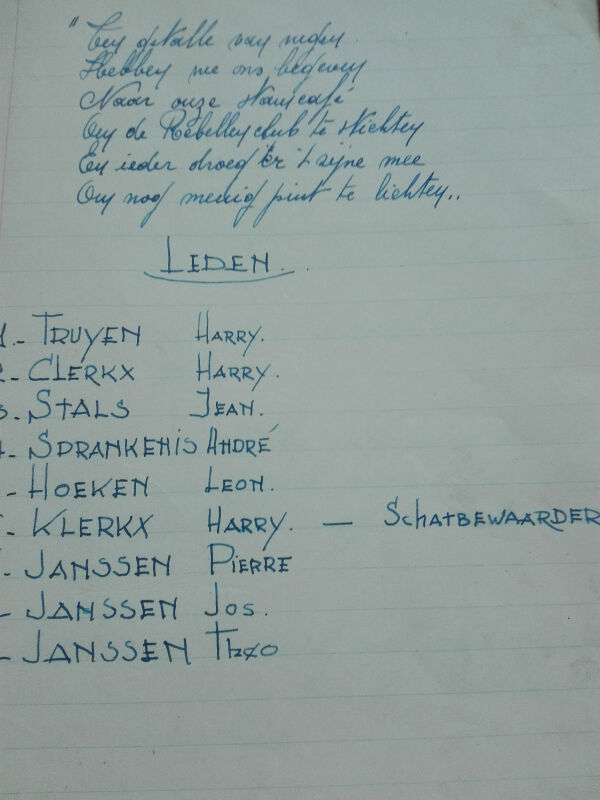 " Ten getalle van negen
Hebben we ons begeven
Naar onze stamcafé
Om de Rebellenclub te stichten
En ieder droeg er 't zijne mee
Om nog menig pint te lichten..
LEDEN.
1.- TRUYEN HARRY.
2- CLERKX HARRY.
3- STALS JEAN.
4- SPRANKENIS ANDRÉ
- HOEKEN LEON.
- KLERKX HARRY. — SCHATBEWAARDER
- JANSSEN PIERRE
- JANSSEN JOS.
- JANSSEN THEO